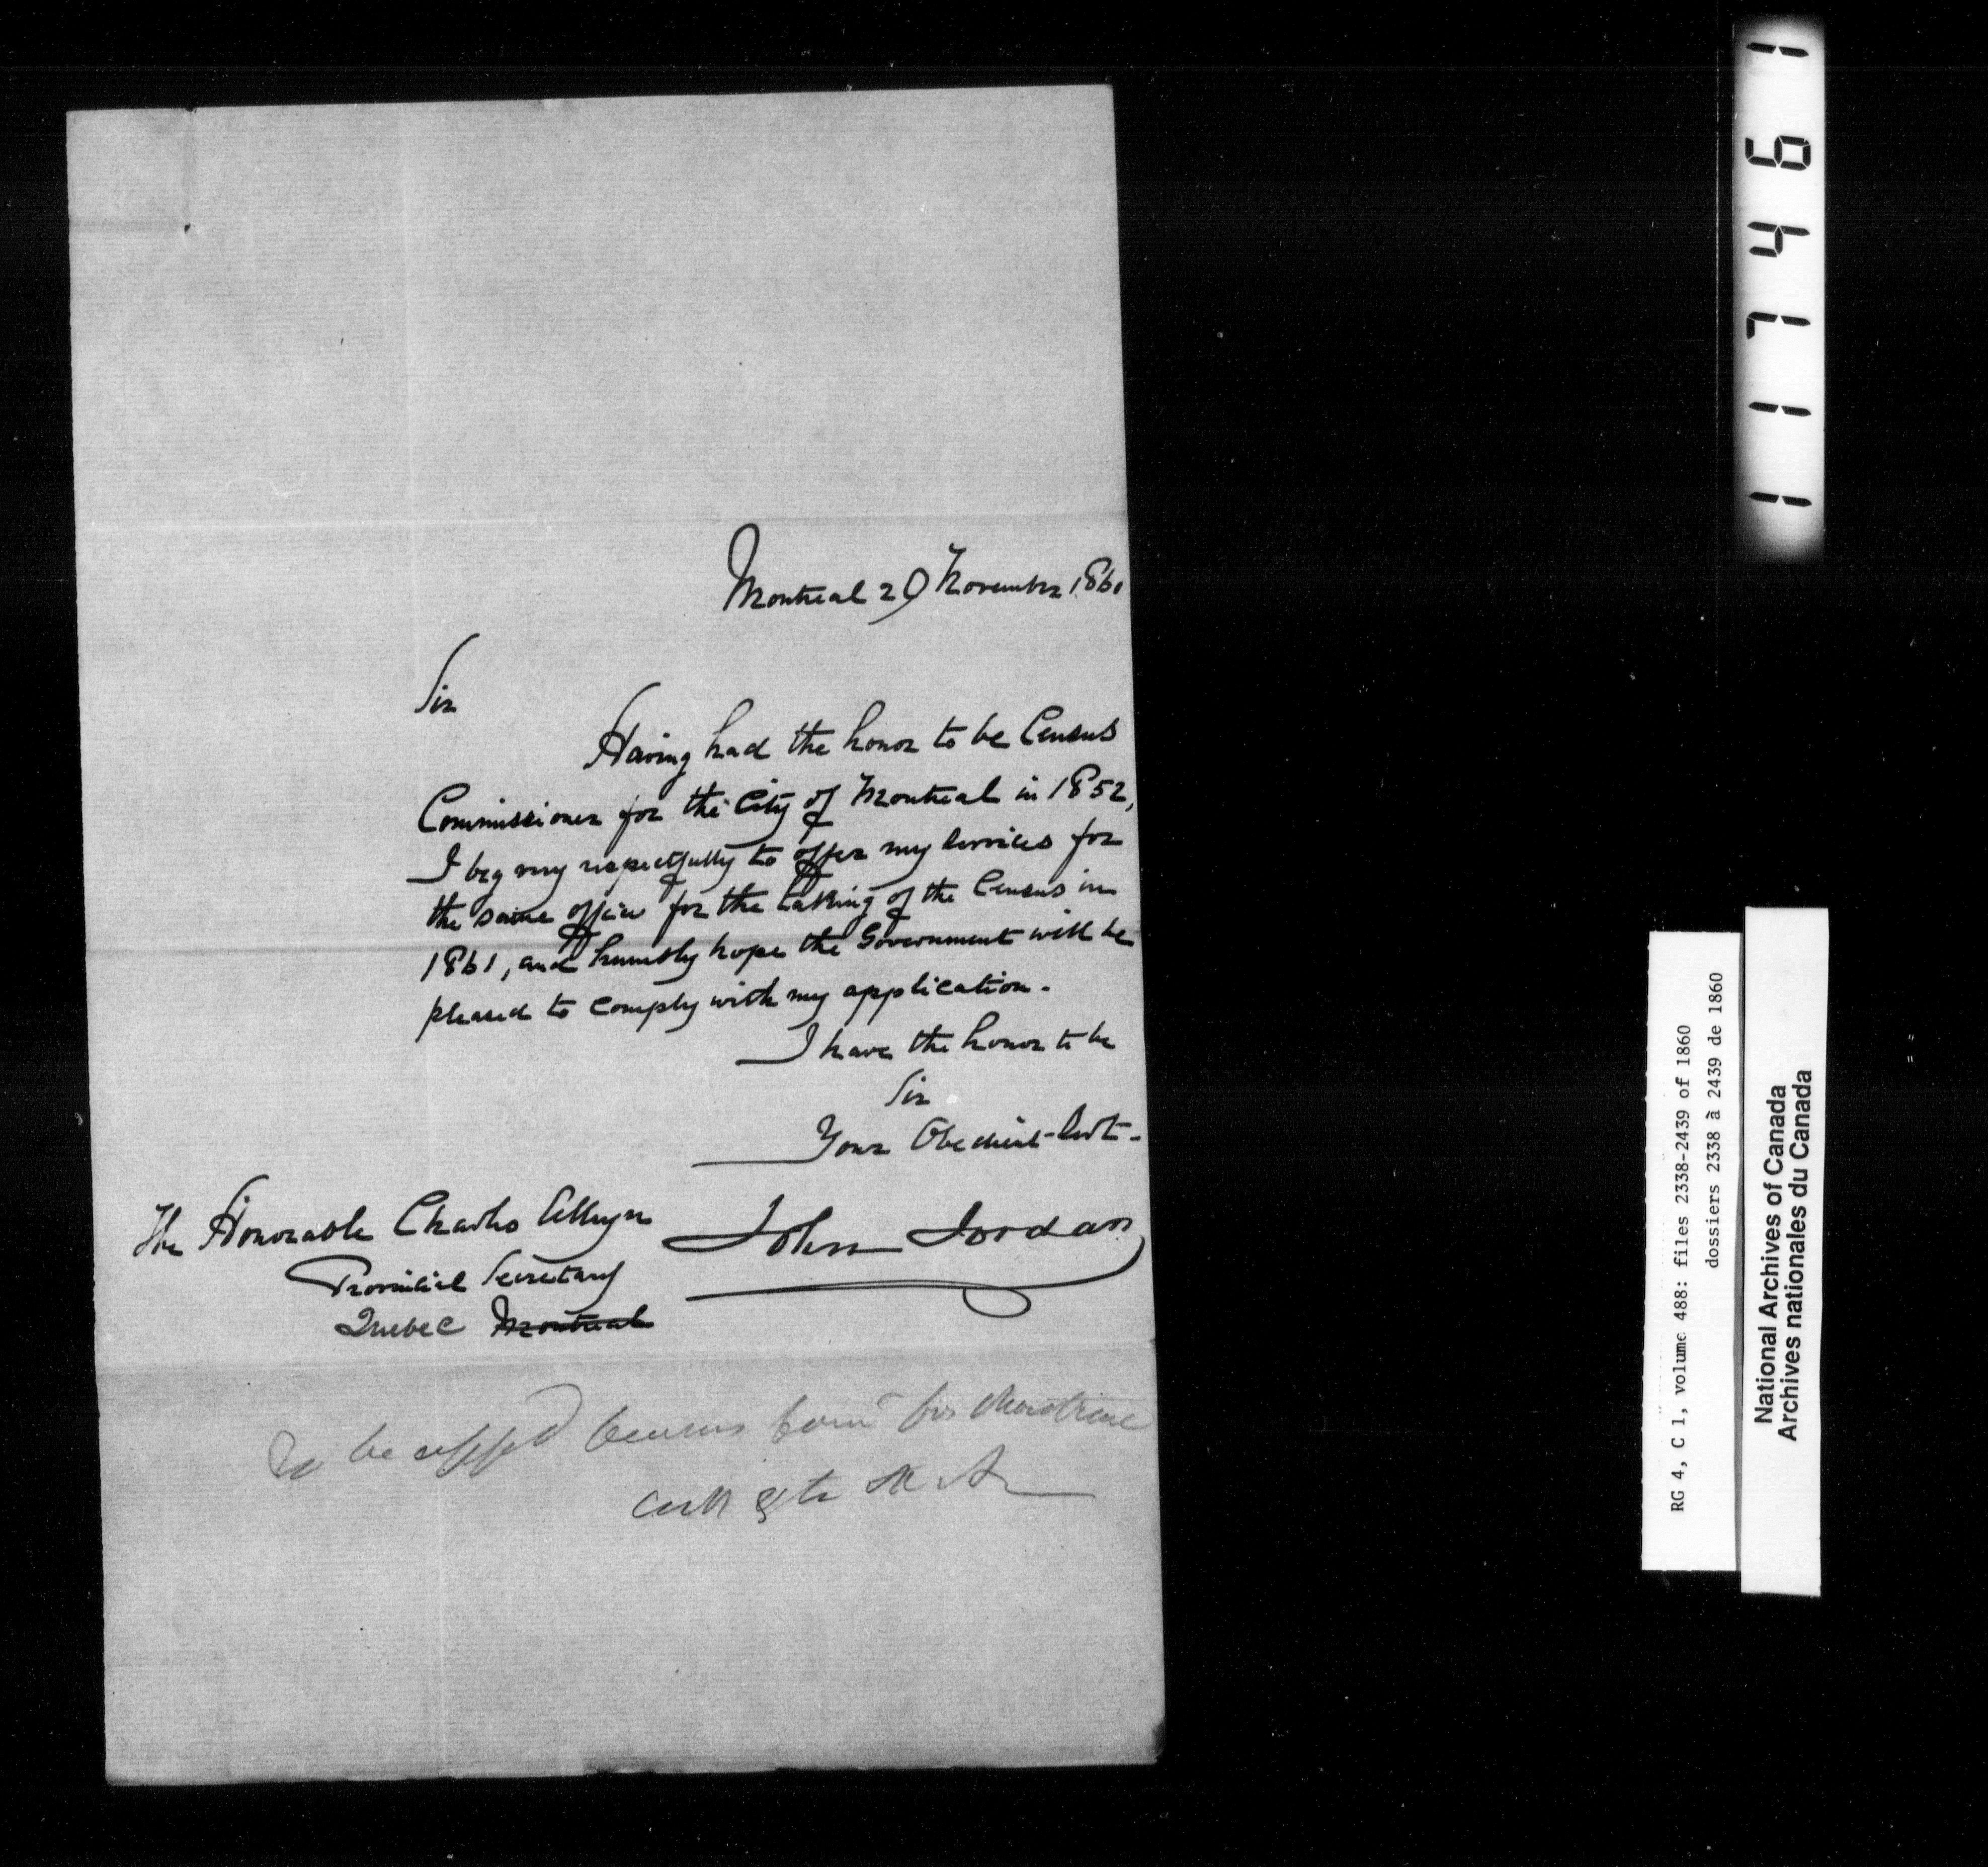 Montreal 29 November 1860
Sir
Having had the honor to be Census
Commissioner for the City of Montreal in 1852,
I beg very respectfully to offer my services for
the same office for the taking of the Census in
1861, and humbly hope the Government will be
pleased to comply with my application.
I have the honor to be
Sir
Your Obedient Servt.
John Jordan
The Honorable Charles Alleyn
Provincial Secretary
Quebec Montreal
To be appd Census Comr for Montreal
117461
RG 4, C 1, volume 488: files 2338-2439 of 1860
dossiers 2338 à 2439 de 1860
National Archives of Canada
Archives nationales du Canada